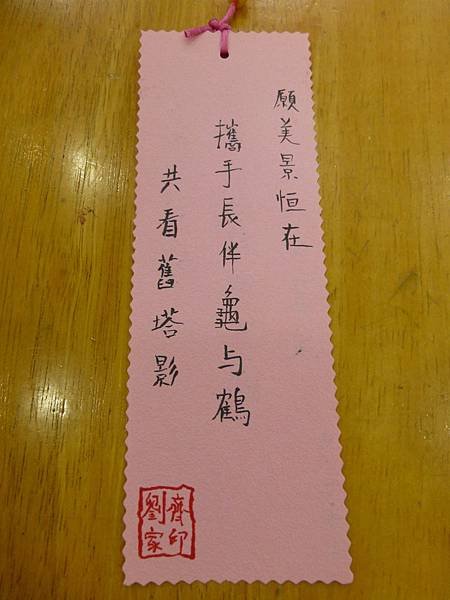 願美景恒在
攜手長伴龜与鶴
共看舊塔影
劉家齊印